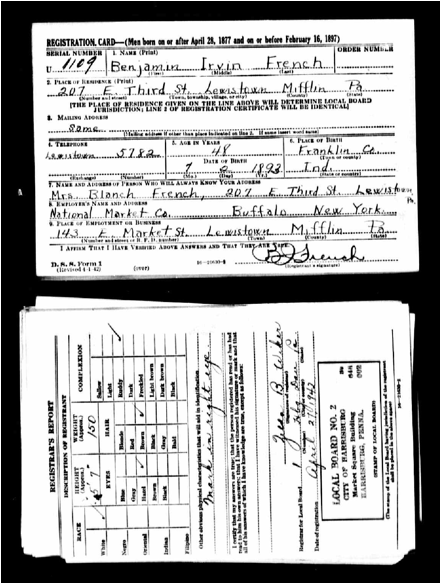 REGISTRATION CARD—(Men born on or after April 28, 1877 and on or before February 16, 1897)
SERIAL NUMBER 1. NAME (Print) ORDER NUMBER
U 1109 Benjamin Irvin French
(First) (Middle) (Last)
2. PLACE OF RESIDENCE (Print)
207 E. Third St. Lewistown Mifflin Pa
(Number and street) (Town, township, village, or city) (County) (State)
[THE PLACE OF RESIDENCE GIVEN ON THE LINE ABOVE WILL DETERMINE LOCAL BOARD
JURISDICTION; LINE 2 OF REGISTRATION CERTIFICATE WILL BE IDENTICAL]
3. MAILING ADDRESS
Same
[Mailing address if other than place indicated on line 2. If same insert word same]
4. TELEPHONE 5. AGE IN YEARS 6. PLACE OF BIRTH
Lewistown 5782 48 Franklin Co.
DATE OF BIRTH (Town or county)
7 1893 Ind.
(Exchange) (Number) (Mo.) (Day) (Yr.) (State or country)
7. NAME AND ADDRESS OF PERSON WHO WILL ALWAYS KNOW YOUR ADDRESS
Mrs. Blanch French, 207 E Third St. Lewistown Pa.
8. EMPLOYER'S NAME AND ADDRESS
National Market Co. Buffalo New York.
9. PLACE OF EMPLOYMENT OR BUSINESS
143 E Market St. Lewistown Mifflin Pa
(Number and street or R. F. D. number) (Town) (County) (State)
I AFFIRM THAT I HAVE VERIFIED ABOVE ANSWERS AND THAT THEY ARE TRUE.
D. S. S. Form 1
(Revised 4-1-42) (over) B I French
(Registrant's signature)
REGISTRAR'S REPORT
DESCRIPTION OF REGISTRANT
RACE HEIGHT (Approx.) WEIGHT (Approx.) COMPLEXION
150
EYES HAIR
White Blue Blonde Sallow
Negro Gray Red Light
Oriental Hazel Brown Ruddy
Indian Brown Black Dark
Filipino Black Gray Freckled
Bald Light brown
Dark brown
Black
Other obvious physical characteristics that will aid in identification
Mark in right eye.
I certify that my answers are true; that the person registered has read or has had
read to him his own answers; that I have witnessed his signature or mark and that
all of his answers of which I have knowledge are true, except as follows:
B. Wiker
Registrar for Local Board
Date of registration April 27 1942
LOCAL BOARD NO. 2
CITY OF HARRISBURG
Market Square Building
HARRISBURG, PENNA.
STAMP OF LOCAL BOARD
(The stamp of the Local Board having jurisdiction of the registrant
shall be placed in the above space)